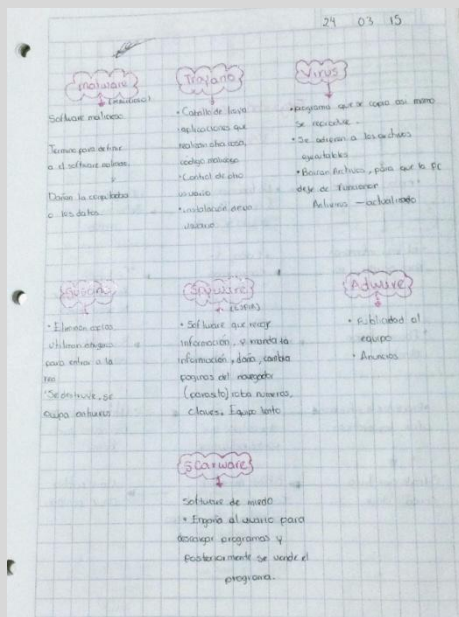 24 03 15
Malware
(malicioso)
Software malicioso
Termino para definir
a el software
Dañan la computadora
o los datos.
Troyano
• Caballo de troya
aplicaciones que
realizan otra cosa,
código malicioso
• Control de otro
usuario
• instalación de un
usuario
Virus
• programa que se copia asi mismo
se reproduce.
• Se adieran a los archivos
ejecutables
• Borran Archivos, para que la PC
deje de funcionar
Antivirus — actualizado
Gusano
• Eliminan copias
utilizan engaño
para entrar a la
• Se destruye, se
ocupa antivirus
Spyware
(ESPIA)
• Software que recoje
información, y manda la
información, daña, cambia
paginas del navegador
(parasito) roba numeros,
claves. Equipo lento
Adware
• Publicidad al
equipo
• Anuncios
Scarware
Software de miedo
• Engaña al usuario para
descargar programas y
posteriormente se vende el
programa.